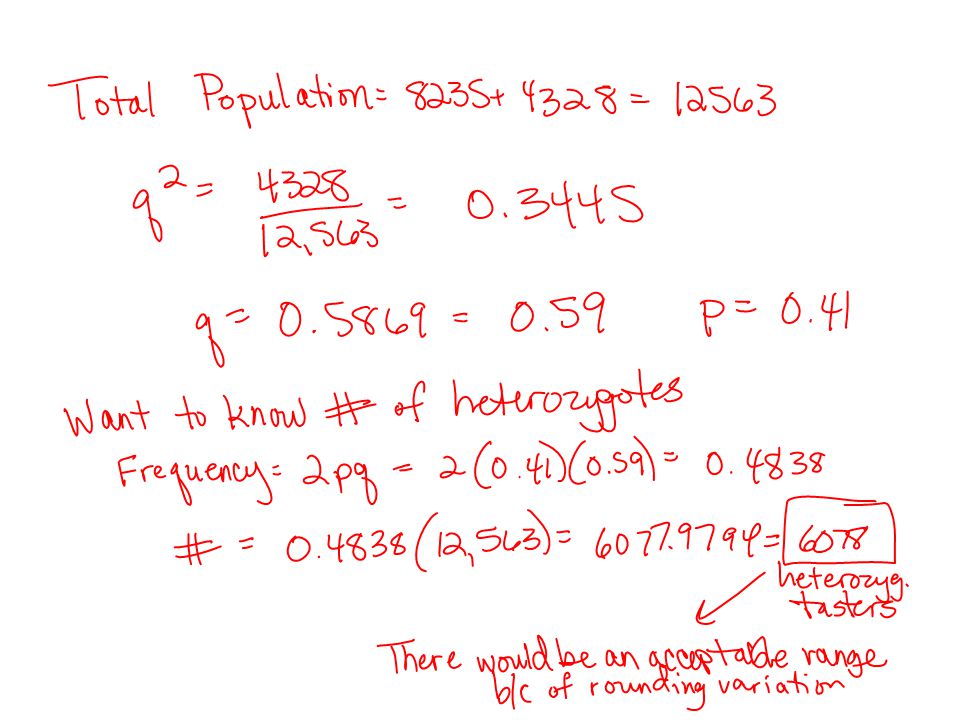 Total Population = 8235 + 4328 = 12563
q² = 4328/12,563 = 0.3445
q = 0.5869 = 0.59 p = 0.41
Want to know # of heterozygotes
Frequency = 2pq = 2(0.41)(0.59) = 0.4838
# = 0.4838(12,563) = 6077.9794 = 6078
heterozyg.
tasters
There would be an acceptable range
b/c of rounding variation